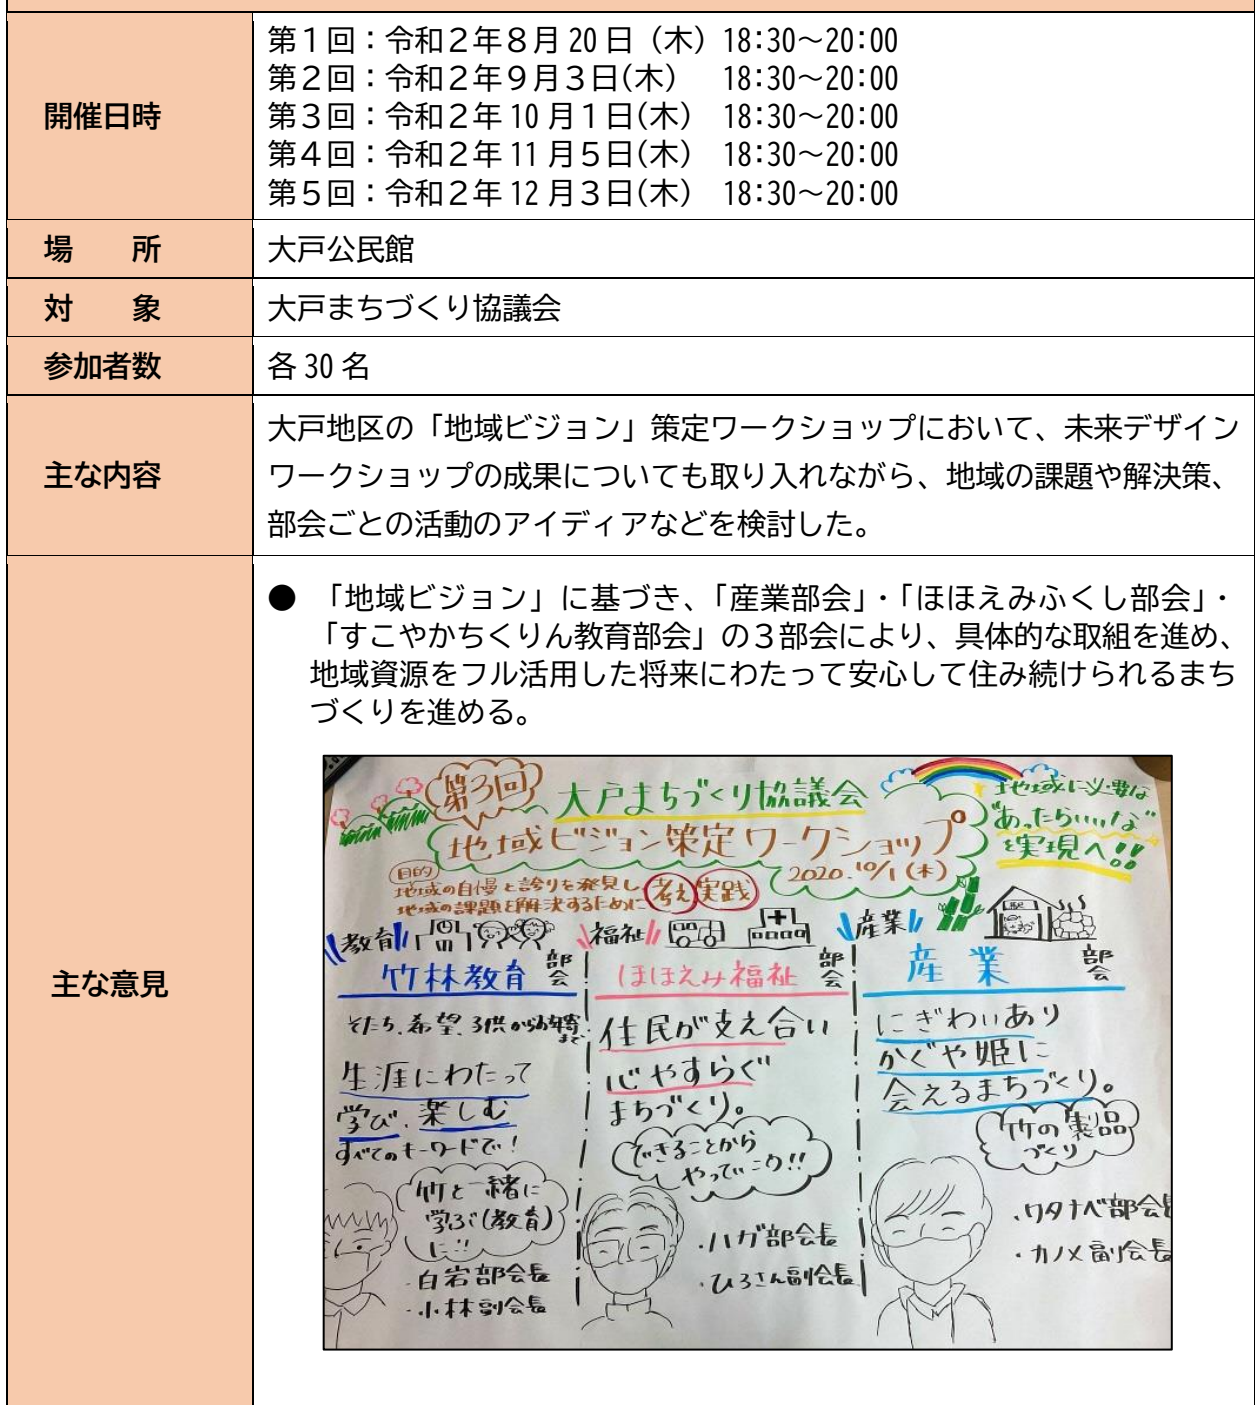 開催日時
第１回：令和２年８月20日（木）18:30～20:00
第２回：令和２年９月３日(木)　18:30～20:00
第３回：令和２年10月１日(木)　18:30～20:00
第４回：令和２年11月５日(木)　18:30～20:00
第５回：令和２年12月３日(木)　18:30～20:00
場　　所
大戸公民館
対　　象
大戸まちづくり協議会
参加者数
各30名
主な内容
大戸地区の「地域ビジョン」策定ワークショップにおいて、未来デザイン
ワークショップの成果についても取り入れながら、地域の課題や解決策、
部会ごとの活動のアイディアなどを検討した。
主な意見
● 「地域ビジョン」に基づき、「産業部会」・「ほほえみふくし部会」・
「すこやかちくりん教育部会」の３部会により、具体的な取組を進め、
地域資源をフル活用した将来にわたって安心して住み続けられるまち
づくりを進める。
第3回
大戸まちづくり協議会
地域ビジョン策定ワークショップ
2020.10/1(木)
地域に必要な
"あったらいいな"
を実現へ!!
目的
地域の自慢と誇りを発見し
地域の課題を解決するために
考え実践
教育
竹林教育
部会
そだち、希望、子供からお年寄まで
生涯にわたって
学び、楽しむ
すべてのキーワードで!
竹と一緒に
学ぶ(教育)
に!!
・白岩部会長
・小林副会長
福祉
ほほえみ福祉
部会
住民が支え合い
心やすらぐ
まちづくり。
できることから
やっていこう!!
・ハガ部会長
・ひろさん副会長
産業
駅
産業
部会
にぎわいあり
かぐや姫に
会えるまちづくり。
竹の製品
づくり
・ワタナベ部会長
・カノメ副会長